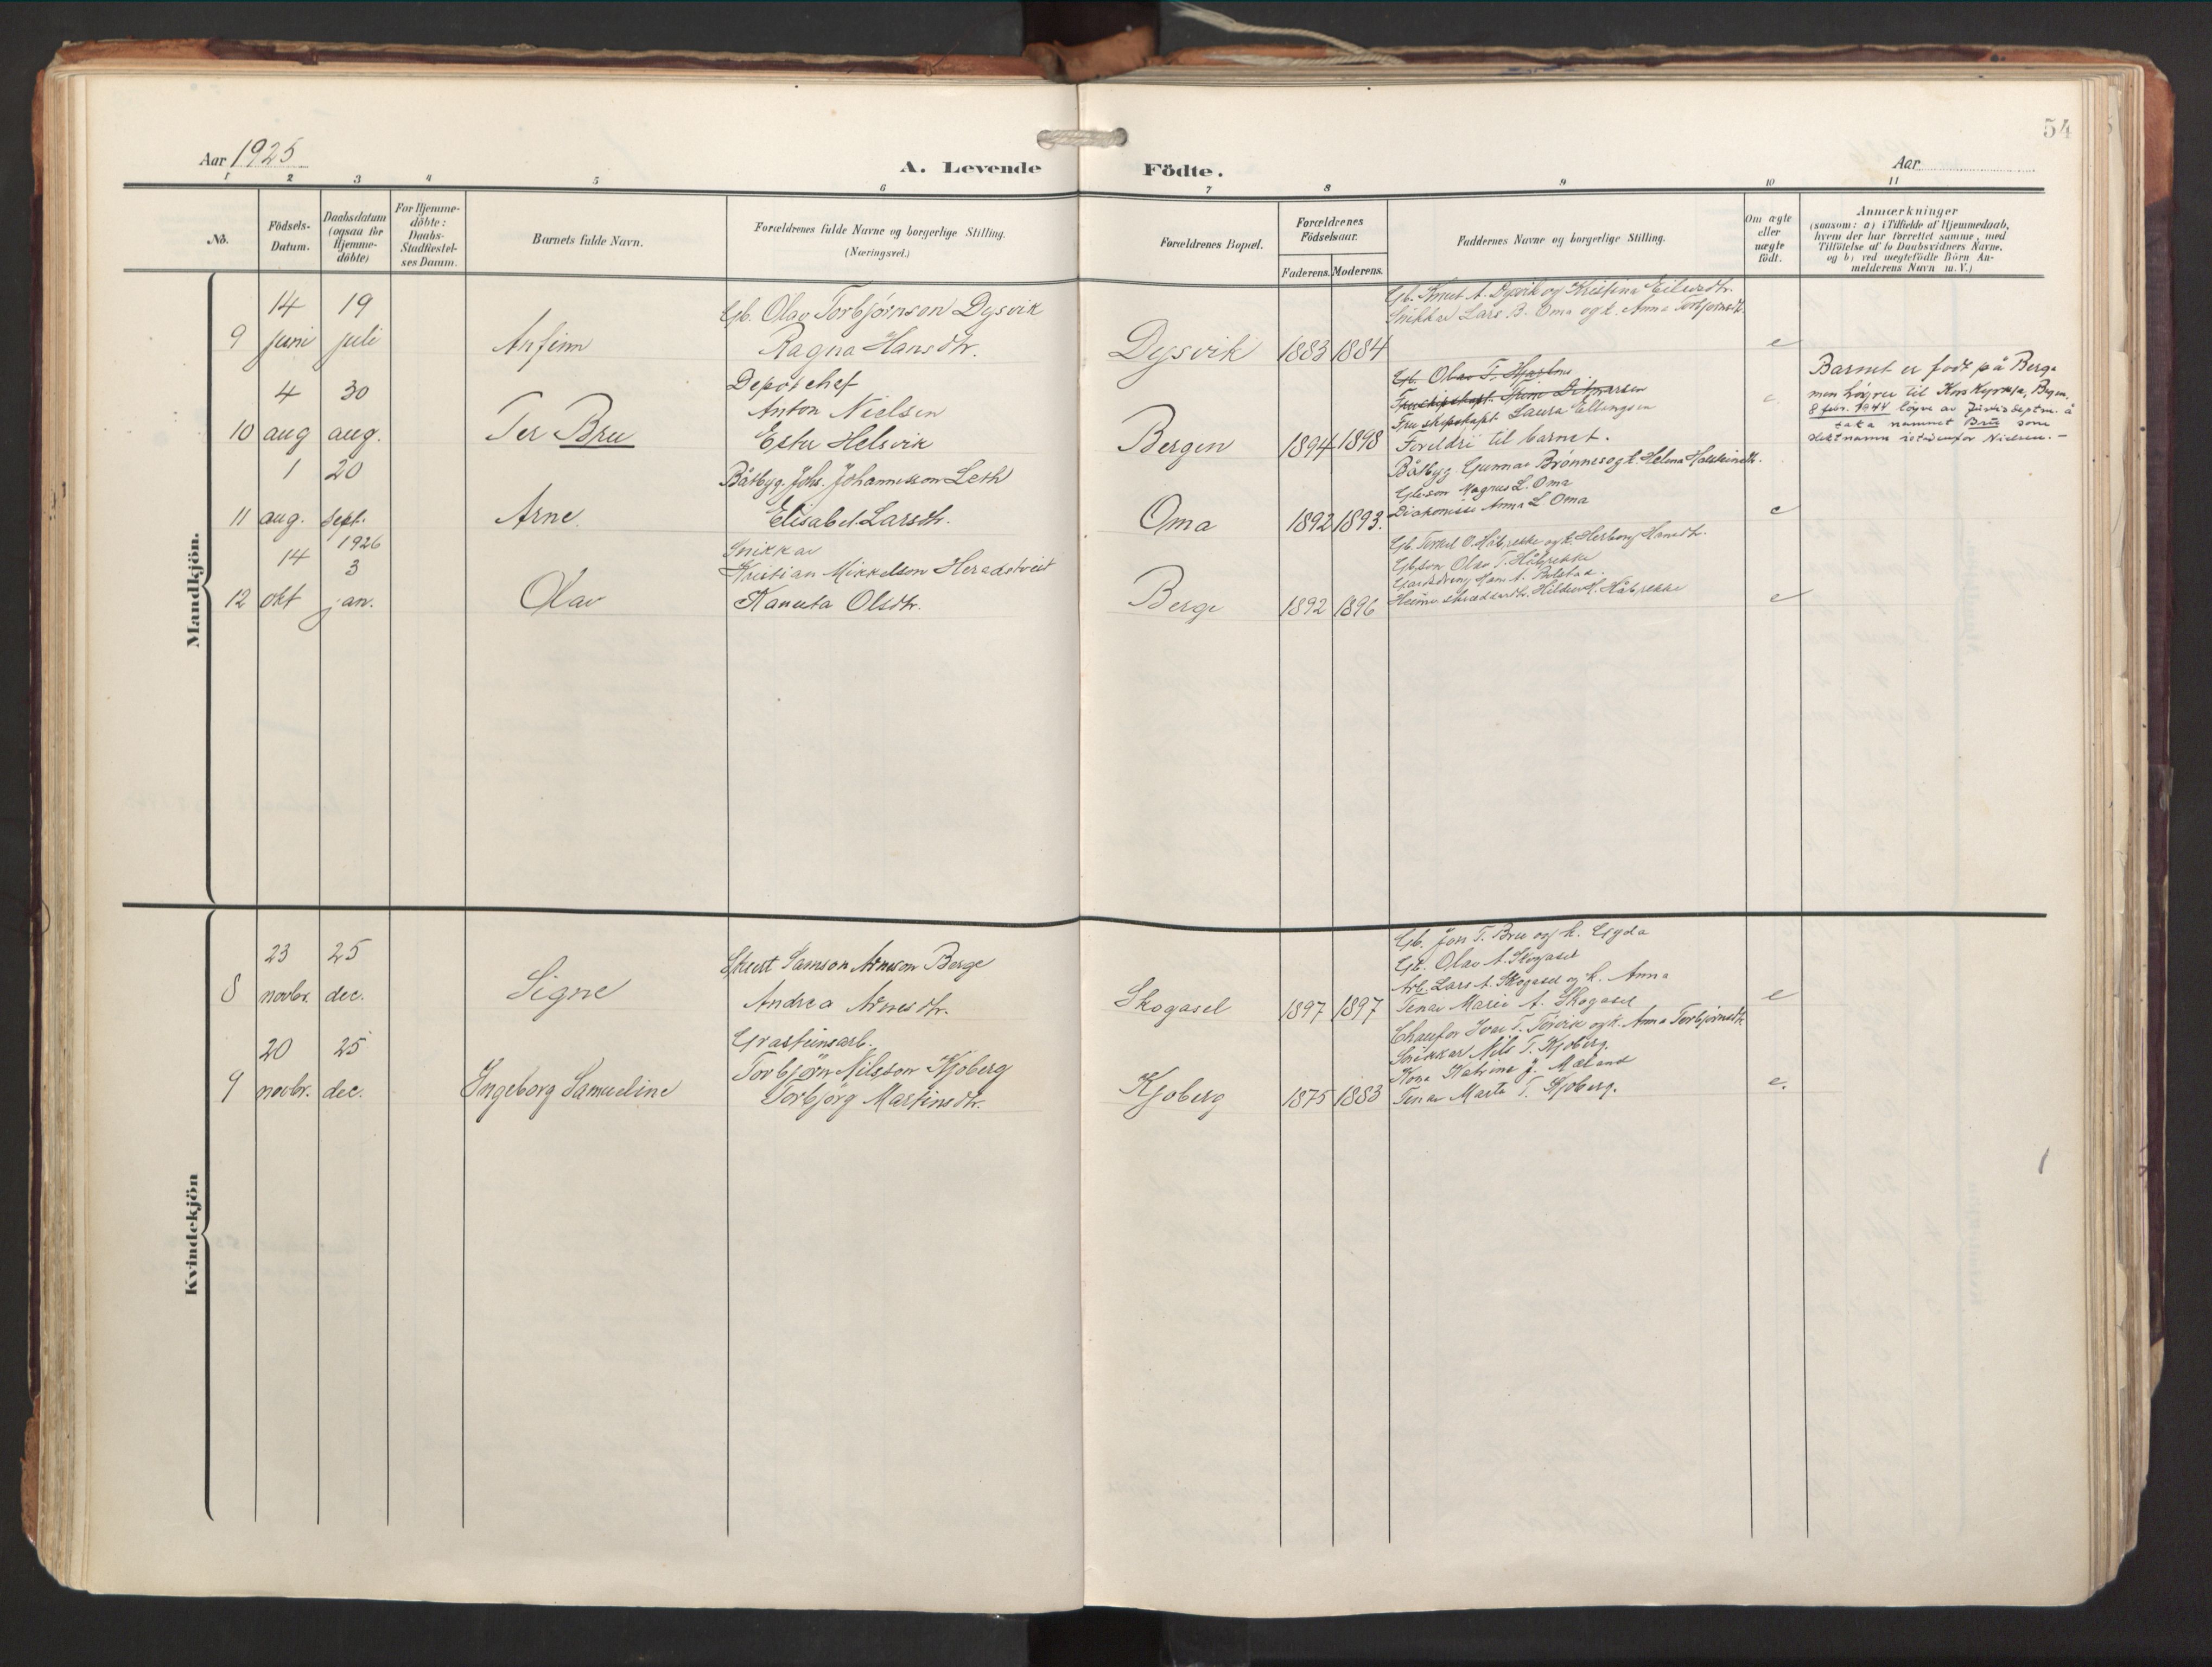 54
Aar 1925
A. Levende Födte.
Aar
1 2 3 4 5 6 7 8 9 10 11
No.
Födsels-Datum.
Daabsdatum (ogsaa for Hjemme-döbte)
For Hjemme-döbte: Daabs-Stadfæstel-ses Datum.
Barnets fulde Navn.
Forældrenes fulde Navne og borgerlige Stilling.
(Næringsvei.)
Forældrenes Bopæl.
Forældrenes Födselsaar.
Faderens. Moderens.
Faddernes Navne og borgerlige Stilling.
Om ægte eller uægte födt.
Anmærkninger
(saasom: a) i Tilfælde af Hjemmedaab,
hvem der har forrettet samme, med
Tilföielse af to Daabsvidners Navne,
og b) ved uægtefödte Börn An-
melderens Navn m. V.)
Mandkjön.
9 14 juni 19 juli
Anfinn
Gb. Olav Torbjørnson Dysvik
Ragna Hansdtr.
Dysvik 1883 1884
Gb. Knut A. Dysvik og Kristina Eilevsdtr.
Snikkar Lars B. Oma og k. Anna Torbjørnsdtr.
e
10 4 aug 30 aug.
Per Bru
Depotchef
Anton Nielsen
Ester Helsvik
Bergen 1894 1898
Gb. Olav T.
Fru skipskapt.
Fru skipskapt. Laura Ellingsen
Foreldri til barnet.
e
Barnet er født på Berge
men höyrer til Korskyrkja, Bergen.
8 febr. 1944 löyve av Justisdeptm. å
taka namnet Bru som
slektnamn istadenfor Nielsen. -
11 1 aug. 20 sept.
Arne
Båtbyg. Johs. Johannesson Leth
Elisabet Larsdtr.
Oma 1892 1893.
Båtbyg. Gunnar Brønnes og k. Helena Halsteinsdtr.
Gbson Magnus L. Oma
Diakonisse Anna L. Oma
e
12 14 okt 1926 3 jan.
Olav
Snikkar
Kristian Mikkelson Heradstveit
Kanuta Olsdtr.
Berge 1892 1896
Gb. Torkel O. Håbrekke og k. Herborg Hansdtr.
Gbson Olav T. Håbrekke
Gardsdreng Hans A. Bolstad.
Heimeskreddardtr. Hilda H. Håbrekke
e
Kvindekjön
8 23 novbr. 25 dec.
Signe
Skurt Samson Arneson Berge
Andrea Arnesdtr.
Skogasel 1897 1897
Gb. Jon T. Bru og k. Gyda
Gb. Olav A. Skogasel
Arb. Lars A. Skogasel og k. Anna
Tenar Marie A. Skogasel
e
9 20 novbr. 25 dec.
Ingeborg Samueline
Grasteinsarb.
Torbjörn Nilsson Kjoberg
Torbjörg Martinsdtr.
Kjoberg 1875 1883
Chaufør Ivar T. Torvik og k. Anna Torbjørnsdtr.
Snikkar Nils T. Kjoberg.
Kona Katrina J. Mæland
Tenar Marta T. Kjoberg.
e.